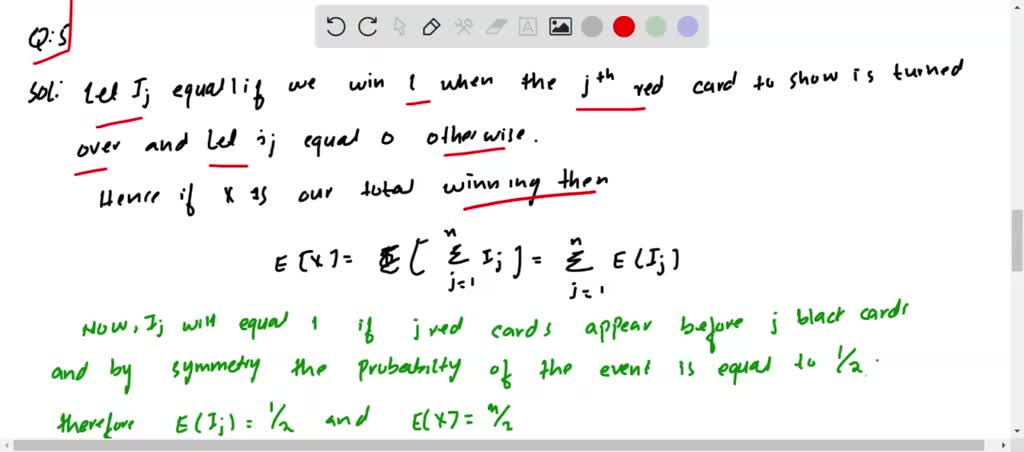 Q:5
Sol: Let Ij equal 1 if we win 1 when the jth red card to show is turned
over and Let ij equal 0 otherwise.
Hence if X is our total winning then
E[X] = E[ n Σ j=1 Ij ] = n Σ j=1 E(Ij)
Now, Ij will equal 1 if j red cards appear before j black cards
and by symmetry the probabilty of the event is equal to 1/2.
therefore E(Ij) = 1/2 and E(X) = n/2